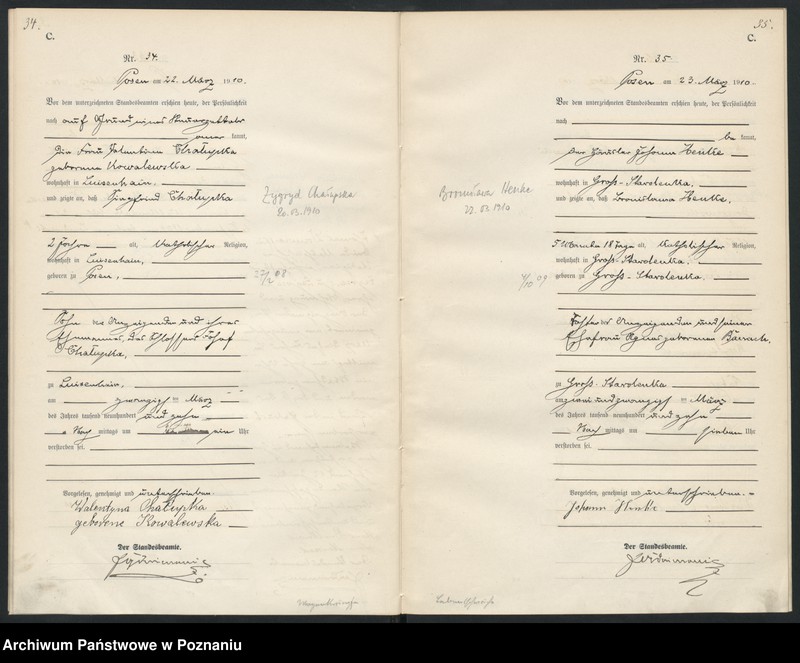 34.
C.
Nr. 34.
Posen am 22. März 1910.
Vor dem unterzeichneten Standesbeamten erschien heute, der Persönlichkeit
nach auf Grund eines
kannt,
die Frau Valentina Chałupka
geborene Kowalewska
wohnhaft in Luisenhain,
und zeigte an, daß Siegfried Chałupka
Zygfryd Chałupska
20.03.1910
2 Jahre alt, katholischer Religion,
wohnhaft in Luisenhain,
geboren zu Posen,
Sohn der Anzeigenden und ihres
Ehemannes, des Schlossers Josef
Chałupka,
zu Luisenhain,
am zwanzigsten März
des Jahres tausend neunhundert und zehn
Nach mittags um ein Uhr
verstorben sei.
Vorgelesen, genehmigt und unterschrieben.
Walentyna Chałupka
geborene Kowalewska
Der Standesbeamte.
35.
C.
Nr. 35.
Posen am 23. März 1910
Vor dem unterzeichneten Standesbeamten erschien heute, der Persönlichkeit
nach
be kannt,
der Häusler Johann Henke
wohnhaft in Groß-Starolenka,
und zeigte an, daß Bronislawa Henke,
Bronisława Henke
22.03.1910
5 Monate 18 Tage alt, katholischer Religion,
wohnhaft in Groß-Starolenka.
geboren zu Groß-Starolenka.
Tochter des Anzeigenden und seiner
Ehefrau Agnes geborenen
zu Groß-Starolenka
am zwei und zwanzigsten März
des Jahres tausend neunhundert und zehn
Nach mittags um sieben Uhr
verstorben sei.
Vorgelesen, genehmigt und unterschrieben.
Johann Henke
Der Standesbeamte.
Archiwum Państwowe w Poznaniu